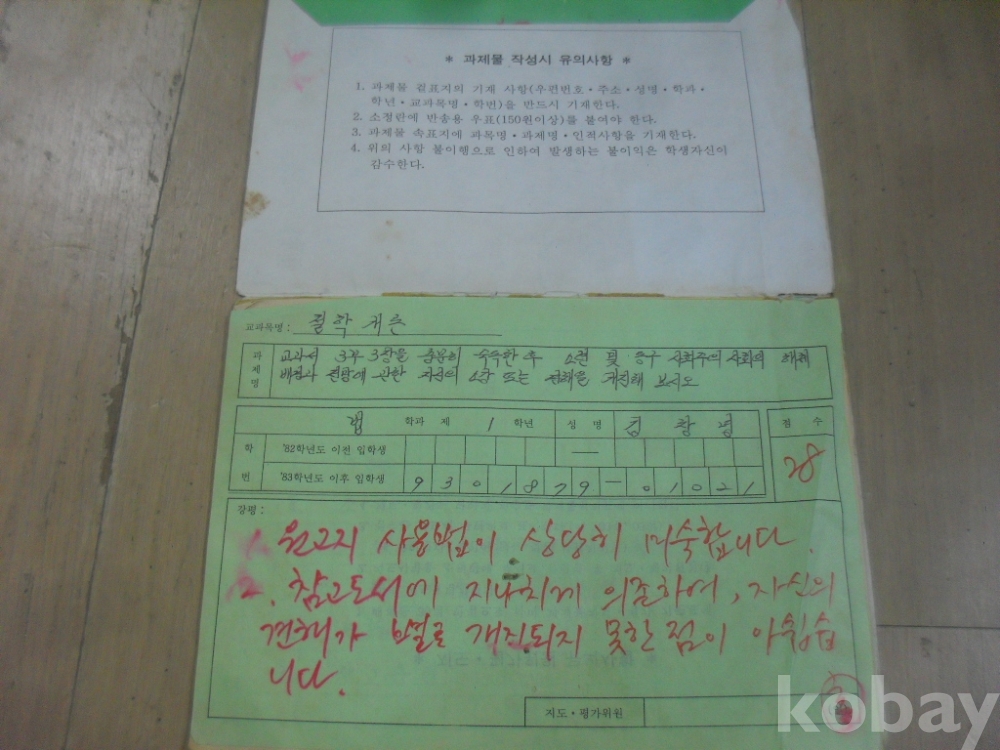 * 과제물 작성시 유의사항 *
1. 과제물 겉표지의 기재 사항(우편번호·주소·성명·학과·
학년·교과목명·학번)을 반드시 기재한다.
2. 소정란에 반송용 우표(150원이상)를 붙여야 한다.
3. 과제물 속표지에 과목명·과제명·인적사항을 기재한다.
4. 위의 사항 불이행으로 인하여 발생하는 불이익은 학생자신이
감수한다.
교과목명: 철학개론
과제명 교과서 3부 3장을 충분히 숙독한 후 소련 및 동구 사회주의 사회의 해체
배경과 전망에 관한 자신의 소감 또는 견해를 개진해 보시오
법 학과 제 1 학년 성명 김창영 점수
학번 '82학년도 이전 입학생 —
'83학년도 이후 입학생 9301879-01021 28
강평:
1. 원고지 사용법이 상당히 미숙합니다.
2. 참고도서에 지나치게 의존하여, 자신의
견해가 별로 개진되지 못한 점이 아쉽습
니다.
지도·평가위원
kobay